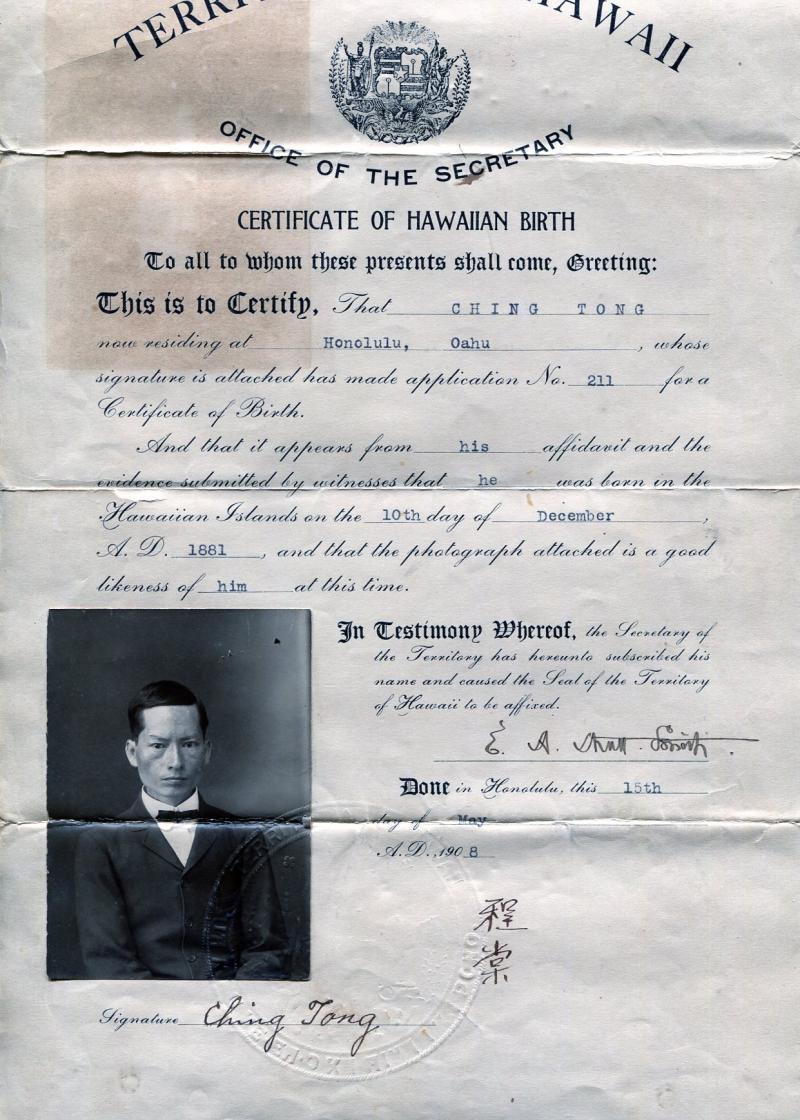 HAWAII
OFFICE OF THE SECRETARY
CERTIFICATE OF HAWAIIAN BIRTH
To all to whom these presents shall come, Greeting:
This is to Certify, That CHING TONG
now residing at Honolulu, Oahu, whose
signature is attached has made application No. 211 for a
Certificate of Birth.
And that it appears from his affidavit and the
evidence submitted by witnesses that he was born in the
Hawaiian Islands on the 10th day of December,
A. D. 1881, and that the photograph attached is a good
likeness of him at this time.
In Testimony Whereof, the Secretary of
the Territory has hereunto subscribed his
name and caused the Seal of the Territory
of Hawaii to be affixed.
E. A. Mott-Smith.
Done in Honolulu, this 15th
day of May
A.D., 1908
程
棠
Signature Ching Tong